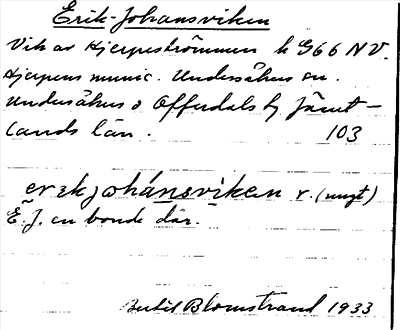 Erik-Johansviken
Vik av Hjerpeströmmen k G66 NV.
Hjerpens munic. Undersåkers sn.
Undersåkers o Offerdals tg Jämt-
lands län. 103
erɪk johánsvìken v. (ungt)
E. J. en bonde där.
Bertil Blomstrand 1933